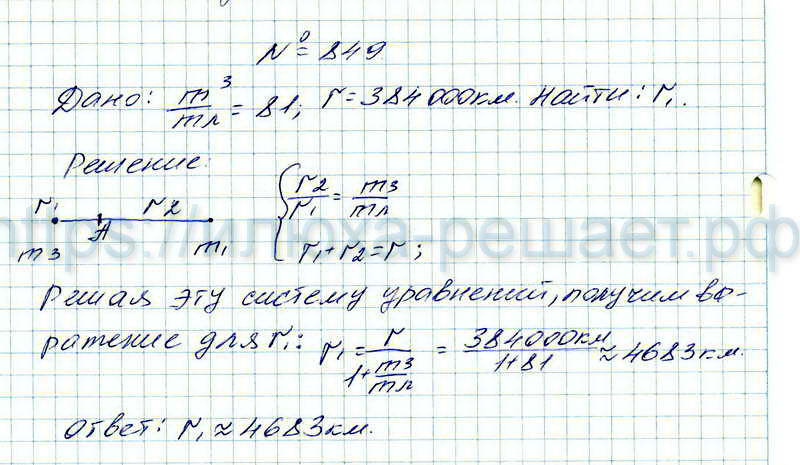 № 849
Дано: mз/mл = 81; r = 384 000 км. Найти: r₁.
Решение:
r₁ r2
A
mз m₁
r2/r₁ = mз/mл
r₁ + r2 = r;
Решая эту систему уравнений, получим вы-
ражение для r₁: r₁ = r/(1+mз/mл) = 384000км/(1+81) ≈ 4683 км.
Ответ: r₁ ≈ 4683 км.
https://илюха-решает.рф